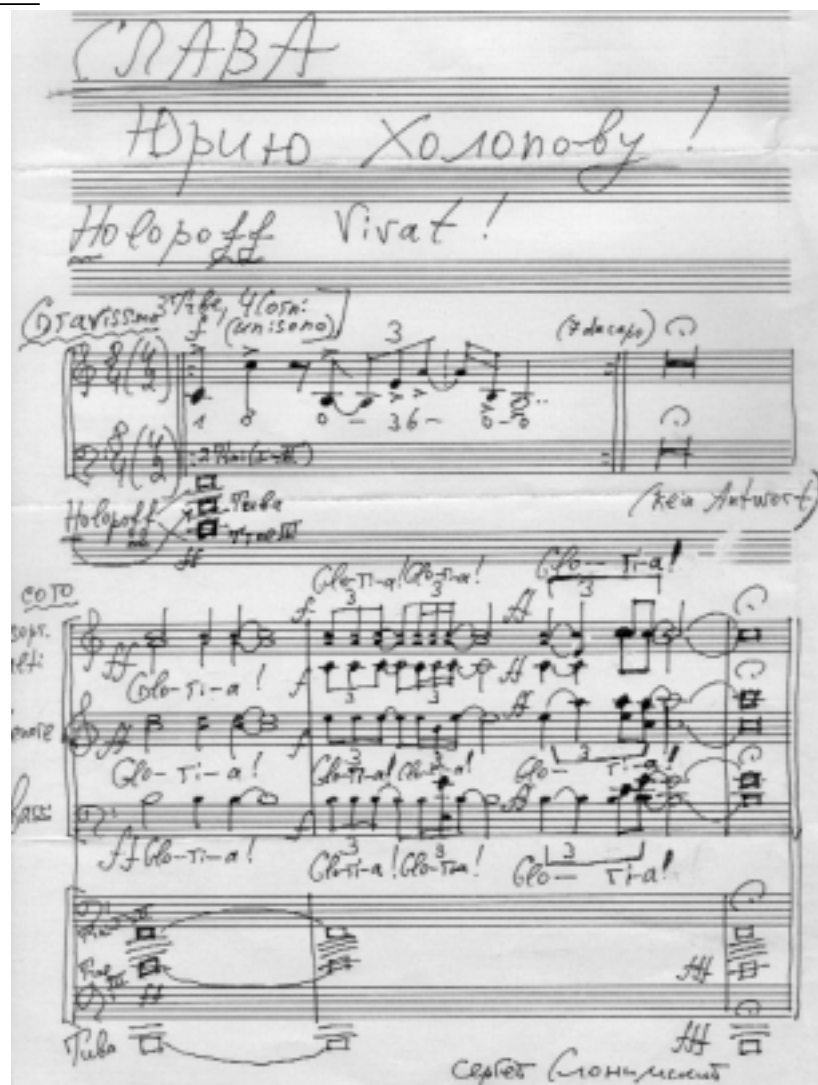 СЛАВА
Юрию Холопову!
Holopoff Vivat!
Gravissimo 3 Tr-be, 4 Corni
f (unisono)
3
(7 da capo)
8/4 (4/2)
1 8 0 - 36 - 0 - 0
8/4 (4/2)
(kein Antwort)
Holopoff
Tuba
Tr-ne III
ff
coro
Glo-ri-a! Glo-ri-a!
Glo-- ri-a!
sopr.
alti
ff
Glo-ri-a!
tenore
Glo-ri-a!
Glo-ri-a! Glo-ri-a!
Glo- ri-a!
Bassi
ff Glo-ri-a!
Glo-ri-a! Glo-ri-a!
Glo- ri-a!
III
ff
fff
Tuba
fff
Сергей Слонимский